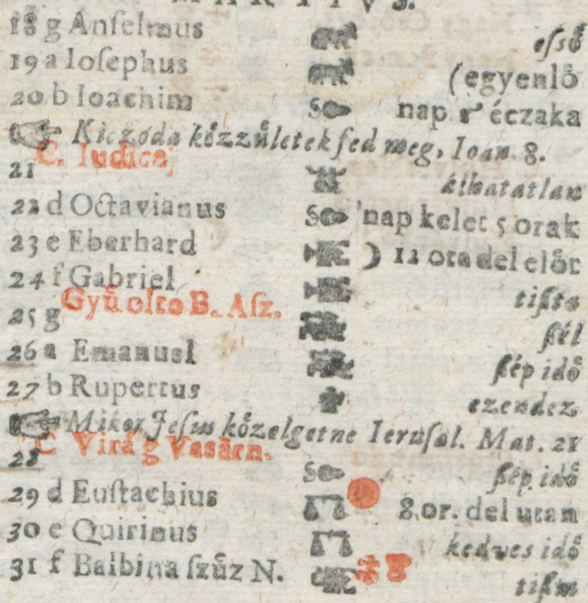 MARTIVS.
18 g Anſelmus eſső
19 a Ioſephus (egyenlő
20 b Ioachim nap. éczaka
Kiczoda kőzzűletek fed meg, Ioan 8.
C. Iudica;
21 álhatatlan
22 d Octavianus nap kelet 5 orak
23 e Eberhard ☽ 11 ora del előt
24 f Gabriel tiſta
Gyű olto B. Aſz.
25 g ſzél
26 a Emanuel ſzép idő
27 b Rupertus czendez
Mikor Jeſus kőzelgetne Ieruſal. Mat. 21
C Virág Vasárn.
28 ſzép idő
29 d Euſtachius 8 or. del utan
30 e Quirinus kedves idő
31 f Balbina ſzűz N.